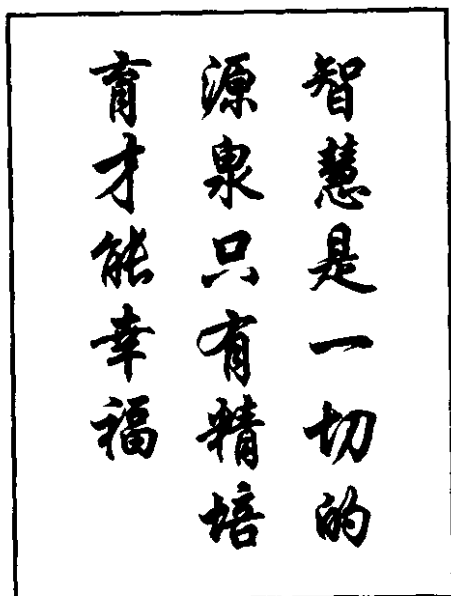 智慧是一切的
源泉只有精培
育才能幸福